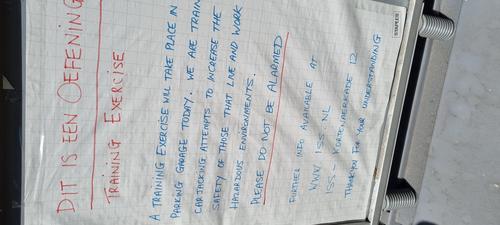 DIT IS EEN OEFENING
TRAINING EXERCISE
A TRAINING EXERCISE WILL TAKE PLACE IN
PARKING GARAGE TODAY. WE ARE TRAIN
CARJACKING ATTEMPTS TO INCREASE THE
SAFETY OF THOSE THAT LIVE AND WORK
HAZARDOUS ENVIRONMENTS.
PLEASE DO NOT BE ALARMED
FURTHER INFO AVAILABLE AT
WWW. ISS. NL
ISS - KORTENAERKADE 12
THANKYOU FOR YOUR UNDERSTANDING
STAPLES